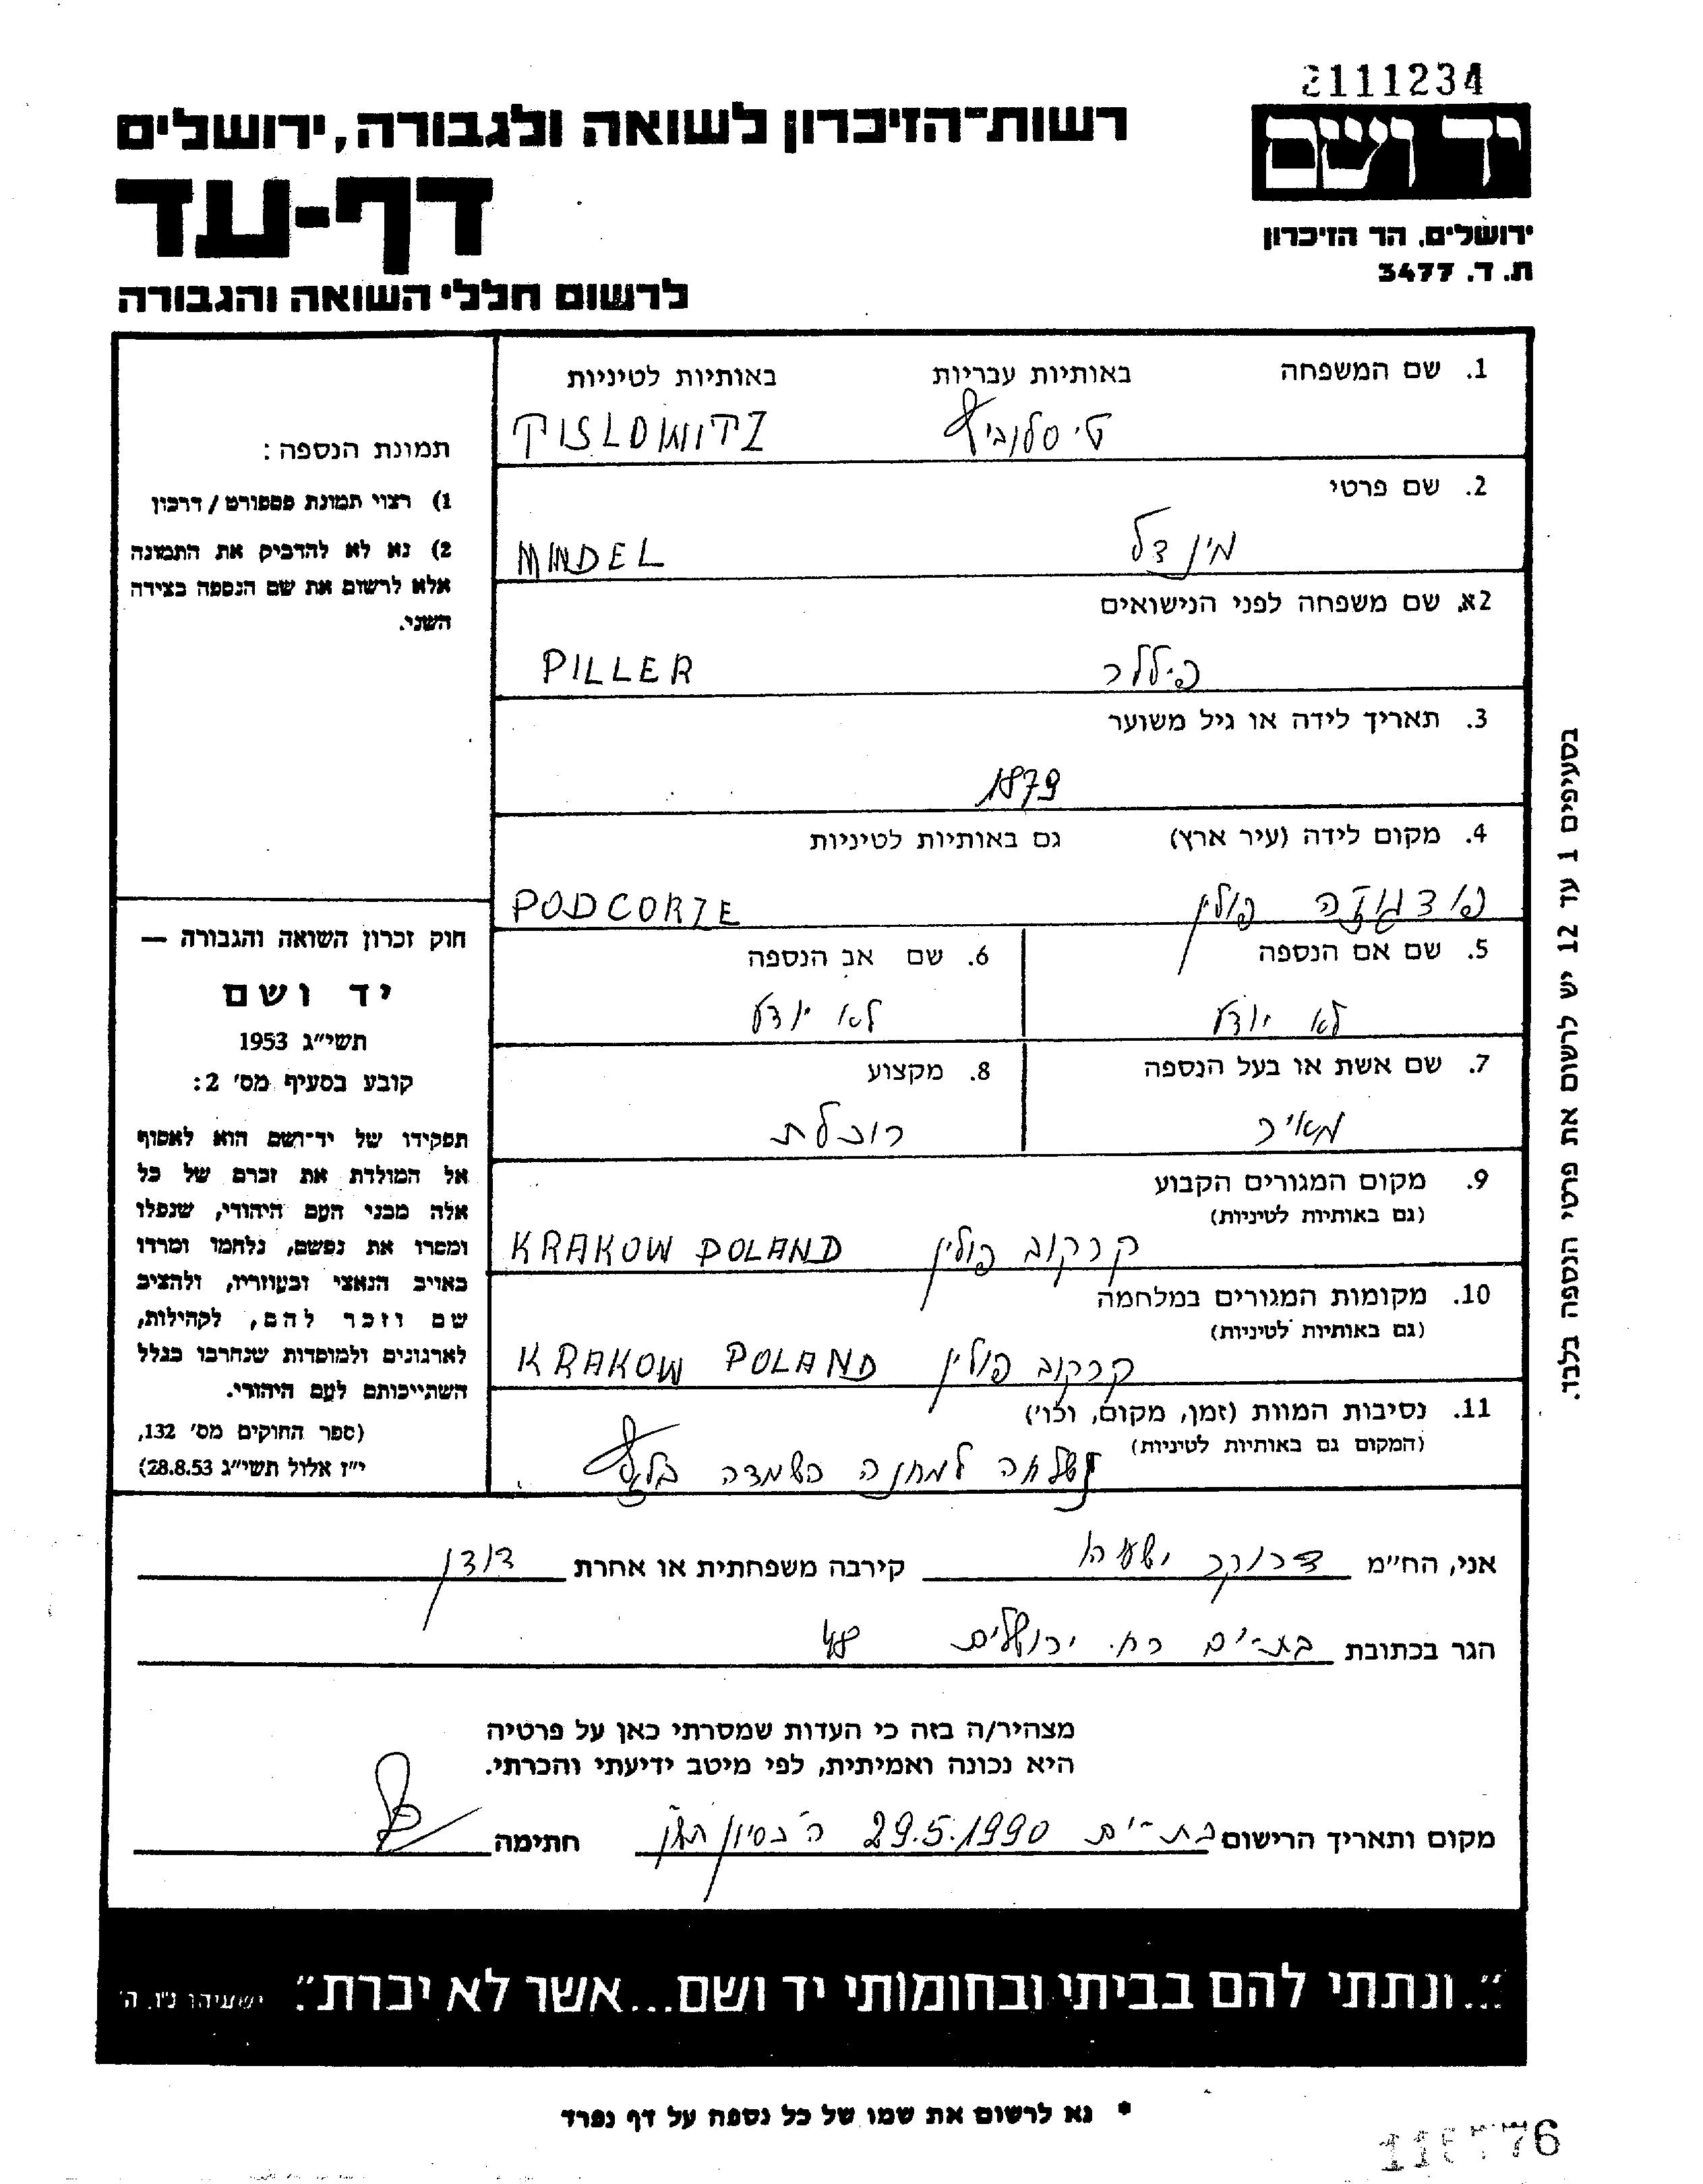 2111234
רשות־הזיכרון לשואה ולגבורה, ירושלים
יד ושם
דף-עד
ירושלים, הר הזיכרון
ת. ד. 3477
לרשום חללי השואה והגבורה
1. שם המשפחה באותיות עבריות באותיות לטיניות
טיסלוביץ TISLOWITZ
2. שם פרטי
מינדל MINDEL
2א. שם משפחה לפני הנישואים
פיללר PILLER
3. תאריך לידה או גיל משוער
1879
4. מקום לידה (עיר ארץ) גם באותיות לטיניות
פודגוז'ה פולין PODCORZE
5. שם אם הנספה 6. שם אב הנספה
לא יודע לא יודע
7. שם אשת או בעל הנספה 8. מקצוע
מאיר רוכלת
9. מקום המגורים הקבוע
(גם באותיות לטיניות)
קרקוב פולין KRAKOW POLAND
10. מקומות המגורים במלחמה
(גם באותיות לטיניות)
קרקוב פולין KRAKOW POLAND
11. נסיבות המוות (זמן, מקום, וכו')
(המקום גם באותיות לטיניות)
נשלחה למחנה השמדה
תמונת הנספה:
1) רצוי תמונת פספורט / דרכון
2) נא לא להדביק את התמונה
אלא לרשום את שם הנספה בצידה
השני.
חוק זכרון השואה והגבורה —
יד ושם
תשי"ג 1953
קובע בסעיף מס' 2:
תפקידו של יד־ושם הוא לאסוף
אל המולדת את זכרם של כל
אלה מבני העם היהודי, שנפלו
ומסרו את נפשם, נלחמו ומרדו
באויב הנאצי ובעוזריו, ולהציב
שם וזכר להם, לקהילות,
לארגונים ולמוסדות שנחרבו בגלל
השתייכותם לעם היהודי.
(ספר החוקים מס' 132,
י"ז אלול תשי"ג 28.8.53)
בסעיפים 1 עד 12 יש לרשום את פרטי הנספה בלבד.
אני, הח"מ דרוקר ישעיהו קירבה משפחתית או אחרת דודן
הגר בכתובת בת-ים רח. ירושלים 48
מצהיר/ה בזה כי העדות שמסרתי כאן על פרטיה
היא נכונה ואמיתית, לפי מיטב ידיעתי והכרתי.
מקום ותאריך הרישום בת-ים 29.5.1990 ה' בסיון תש"ן חתימה
"...ונתתי להם בביתי ובחומותי יד ושם...אשר לא יכרת". ישעיהו נ"ו, ה'
* נא לרשום את שמו של כל נספה על דף נפרד